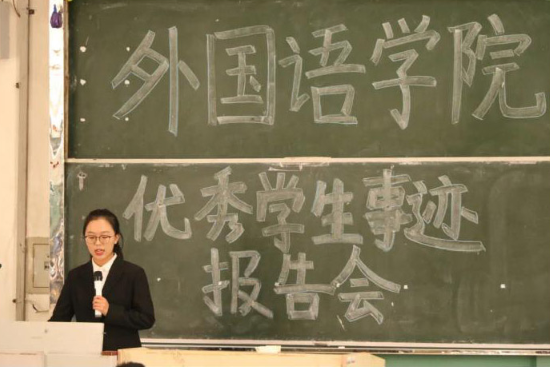 外国语学院
优秀学生事迹
报告会